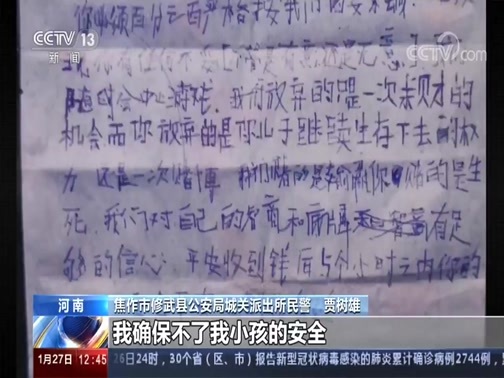 CCTV 13
新闻
CCTV.com
你必须百分之百严格按我们的要求做
随时会中止游戏. 我们放弃的只是一次求财的
机会而你放弃的是你儿子继续生存下去的权
力 还是一次赌博 我们赌的是输赢你 赌的是生
死. 我们对自己的智商和 有足
够的信心. 平安收到钱后 个小时之内你的
河南
焦作市修武县公安局城关派出所民警 贾树雄
我确保不了我小孩的安全
1月27日 12:45
26日24时，30个省（区、市）报告新型冠状病毒感染的肺炎累计确诊病例2744例，